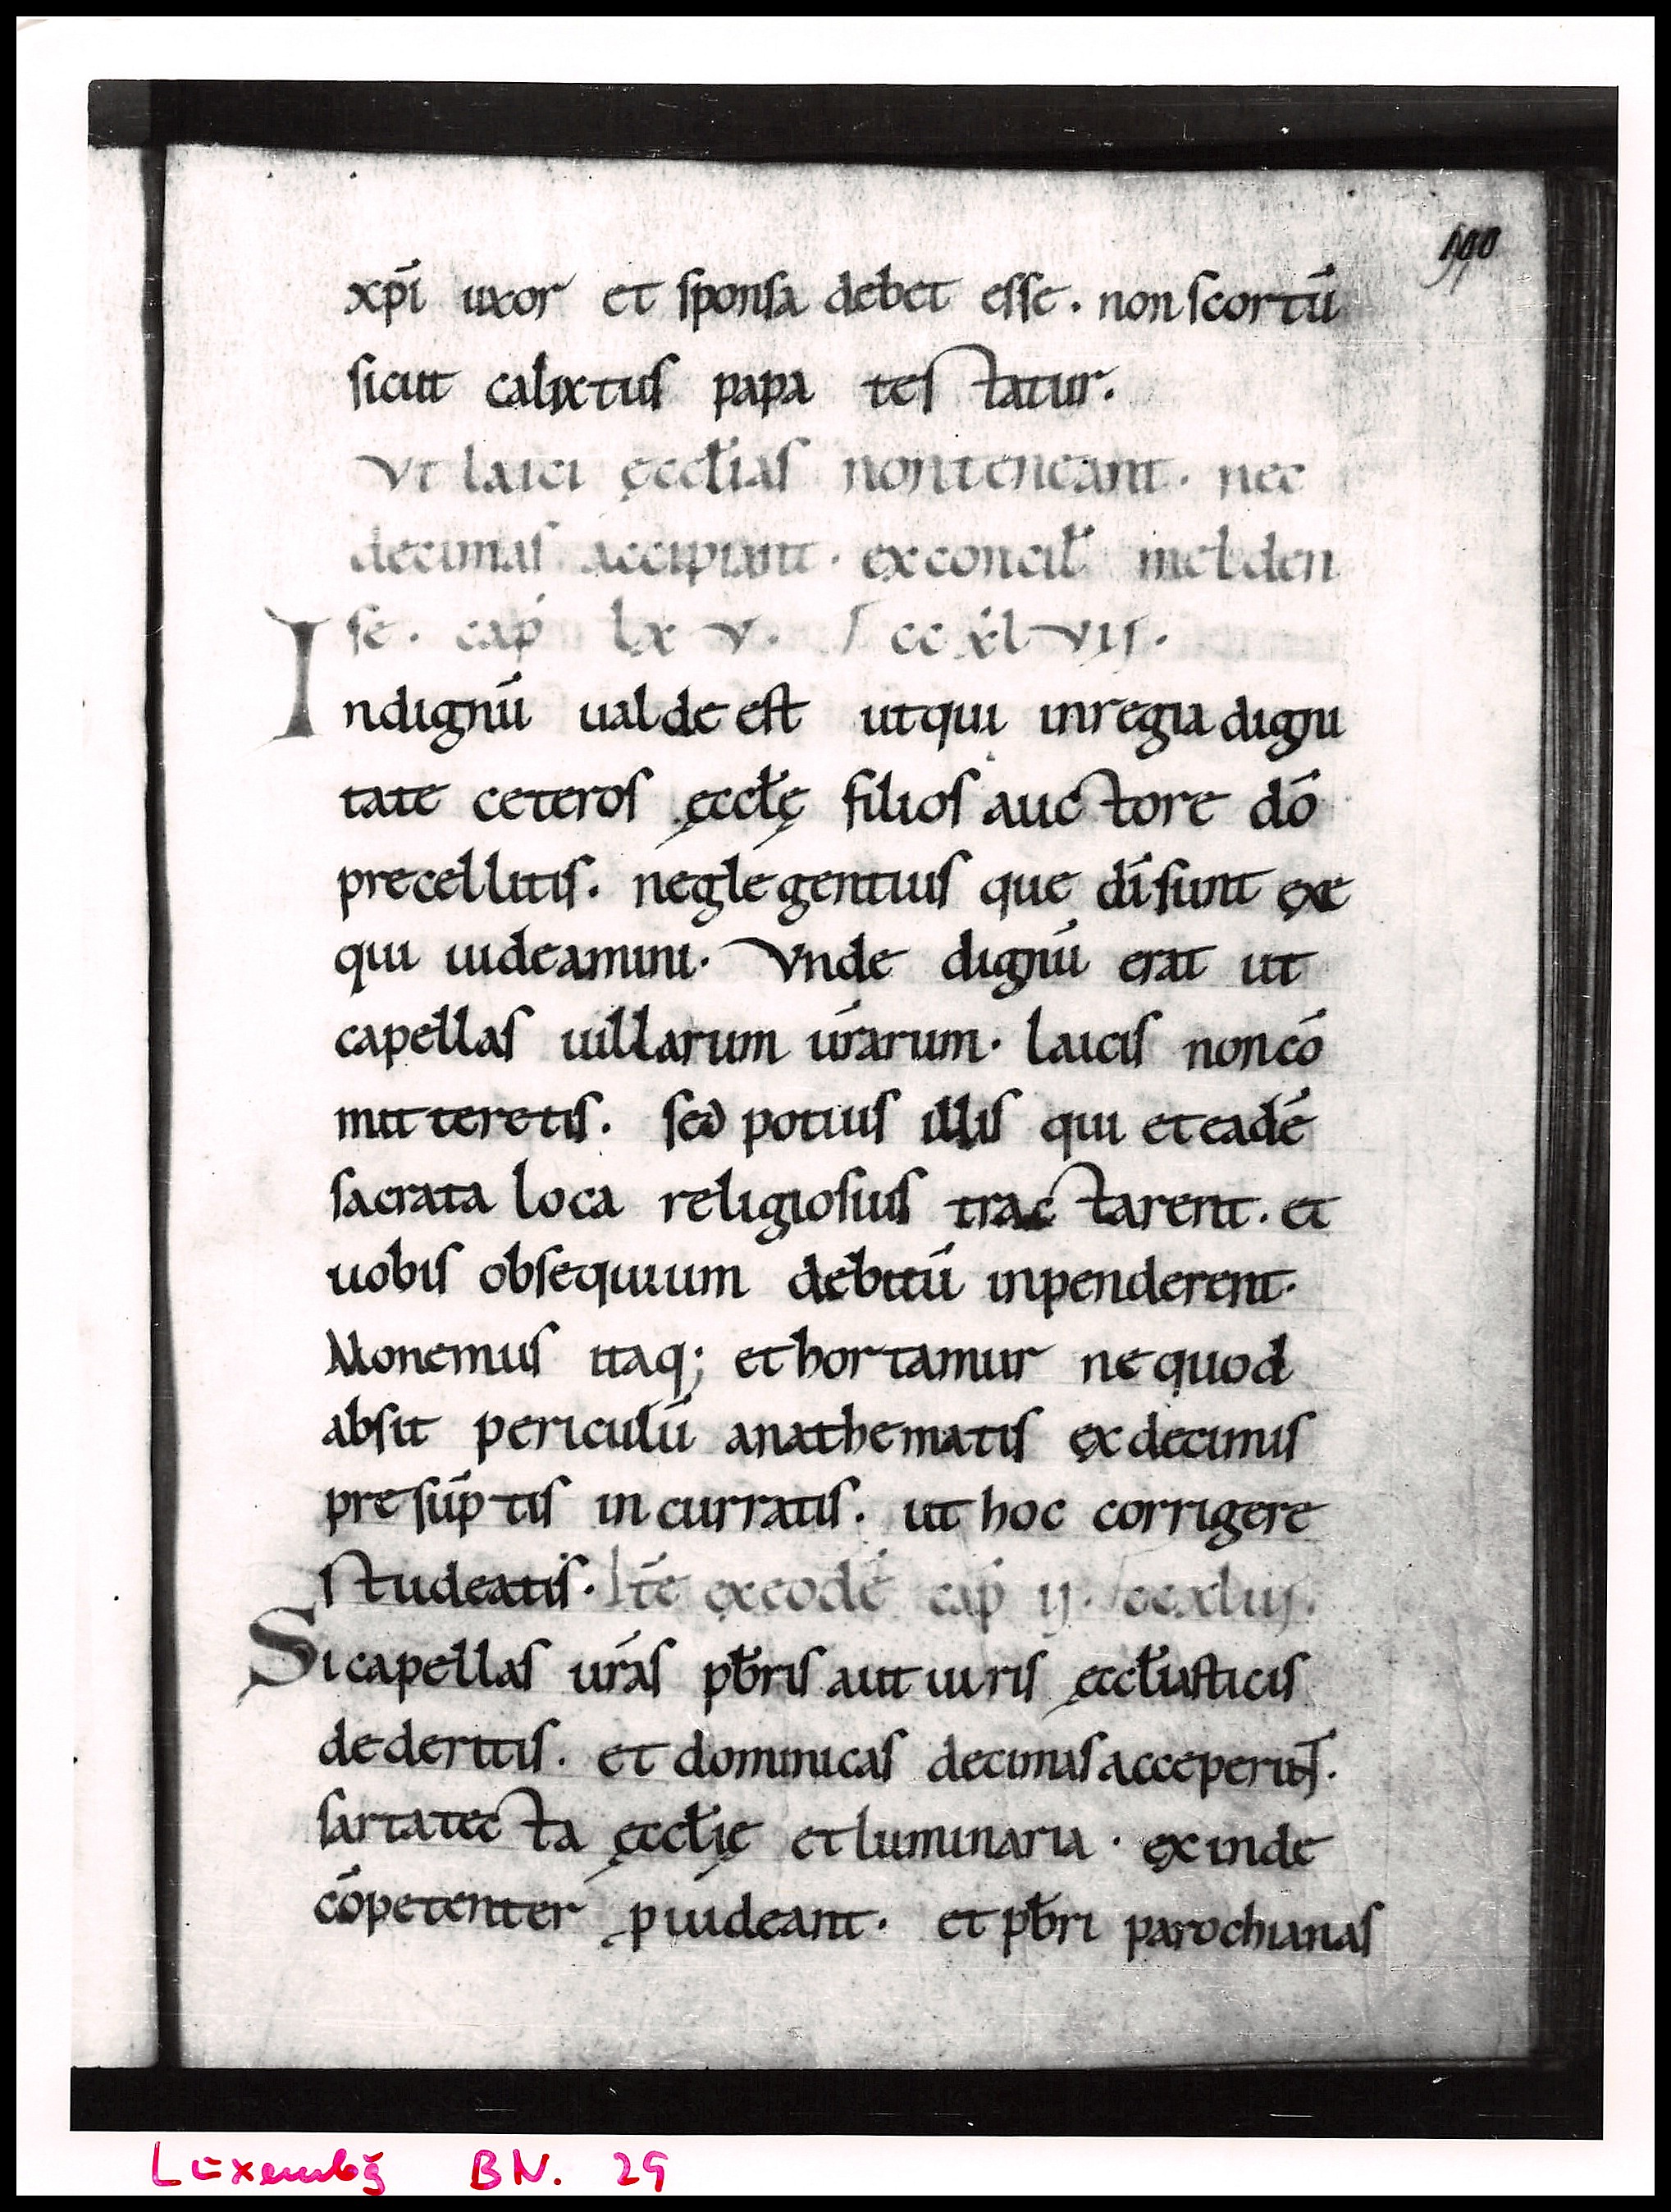 190
xp̄i uxor et sponsa debet esse. non scortū
sicut calixtus papa testatur.
Vt laici ęccl̄ias non teneant. nec
decimas accipiant. ex concil̄ melden
se. cap̄ lxv. ccxlvii.
Indignū ualde est ut qui in regia digni
tate ceteros ęccl̄ę filios auctore dō
precellitis. neglegentius que dī sunt exe
qui uideamini. Vnde dignū erat ut
capellas uillarum ūrarum. laicis non cō
mitteretis. sed potius illis qui et eadē
sacrata loca religiosius tractarent. et
uobis obsequium debitū inpenderent.
Monemus itaq; et hortamur ne quod
absit periculū anathematis ex decimis
presūptis incurratis. ut hoc corrigere
studeatis. Itē ex eodē cap̄ ii.
Si capellas ūras pb̄ris aut uiris ęccl̄iasticis
dederitis. et dominicas decimas acceperint.
sartatecta ęccl̄ię et luminaria. exinde
cōpetenter ꝓuideant. et pb̄ri parochianas
Luxembg BN. 29